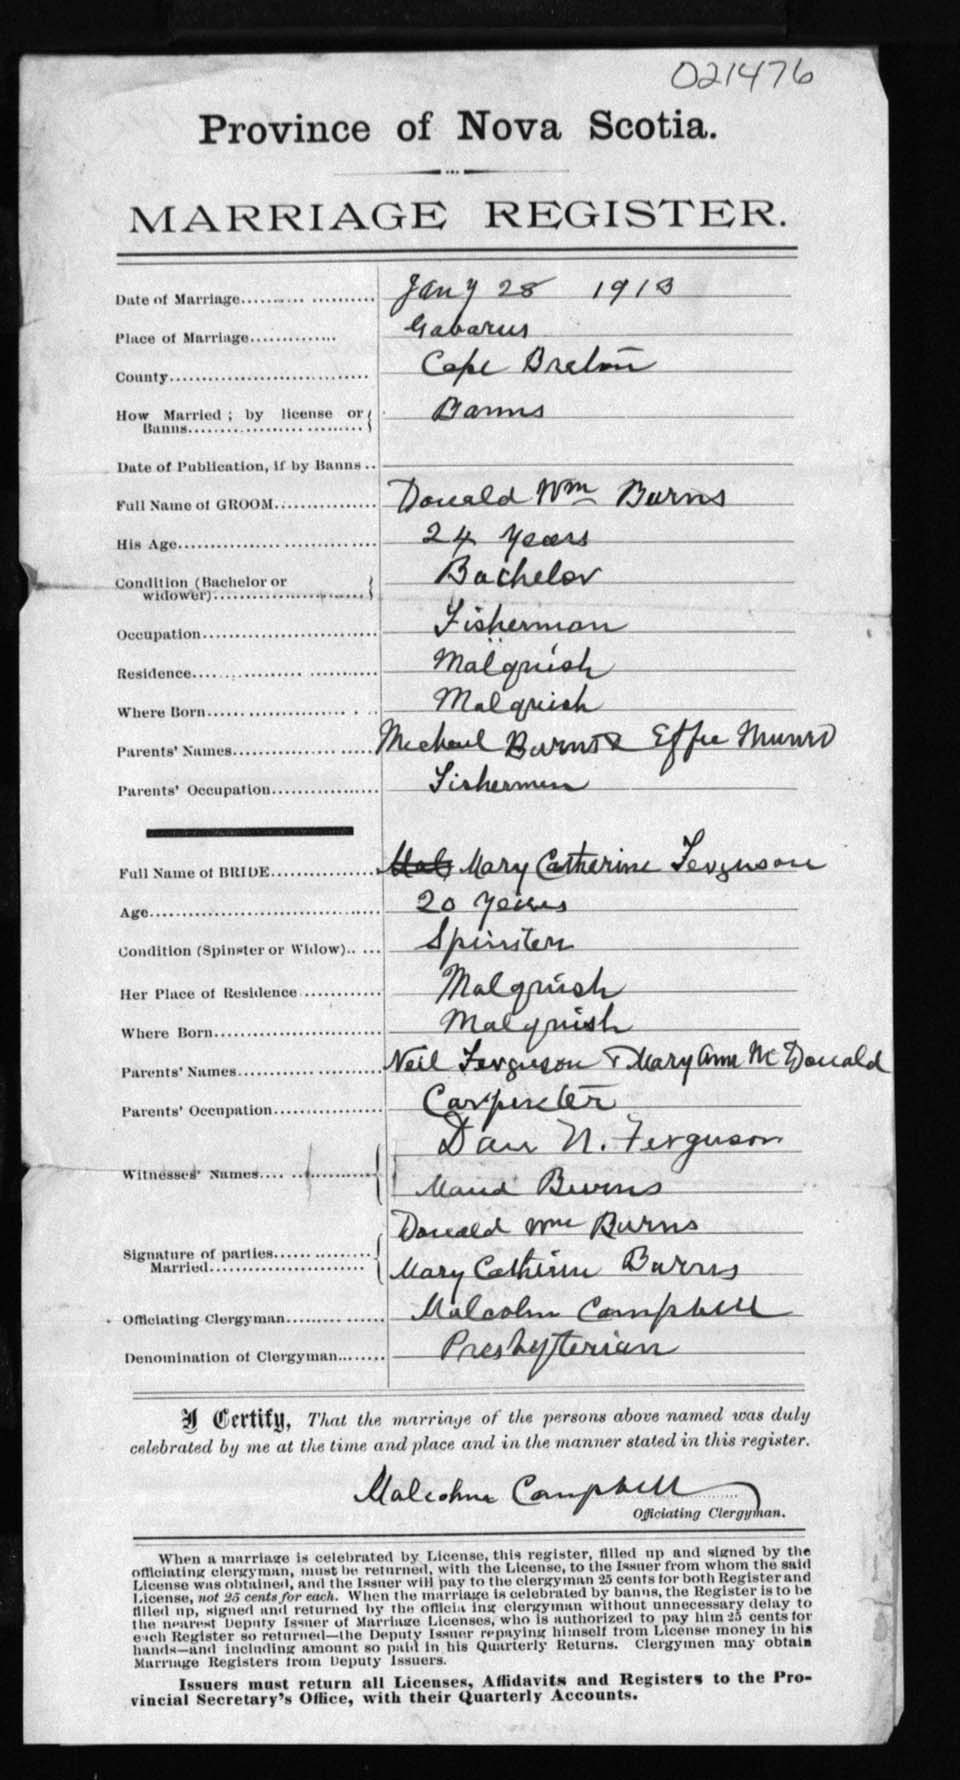 021476
Province of Nova Scotia.
MARRIAGE REGISTER.
Date of Marriage........................ Jany 28 1913
Place of Marriage.............. Gabarus
County.............................. Cape Breton
How Married ; by license or
Banns.............................. Banns
Date of Publication, if by Banns..
Full Name of GROOM................ Donald Wm Burns
His Age.............................. 24 years
Condition (Bachelor or
widower)........................ Bachelor
Occupation.......................... Fisherman
Residence............................ Malquish
Where Born........................ Malquish
Parents' Names...................... Michael Burns & Effie Munro
Parents' Occupation................. Fishermen
Full Name of BRIDE................ Mary Catherine Ferguson
Age.................................. 20 years
Condition (Spinster or Widow)..... Spinster
Her Place of Residence............ Malquish
Where Born........................ Malquish
Parents' Names...................... Neil Ferguson & Mary Ann McDonald
Parents' Occupation................ Carpenter
Dan N. Ferguson
Witnesses' Names....................
Maud Burns
Donald Wm Burns
Signature of parties................
Married........................ Mary Catherine Burns
Officiating Clergyman.............. Malcolm Campbell
Denomination of Clergyman........ Presbyterian
I Certify, That the marriage of the persons above named was duly
celebrated by me at the time and place and in the manner stated in this register.
Malcolm Campbell
Officiating Clergyman.
When a marriage is celebrated by License, this register, filled up and signed by the
officiating clergyman, must be returned, with the License, to the Issuer from whom the said
License was obtained, and the Issuer will pay to the clergyman 25 cents for both Register and
License, not 25 cents for each. When the marriage is celebrated by banns, the Register is to be
filled up, signed and returned by the officia ing clergyman without unnecessary delay to
the nearest Deputy Issuer of Marriage Licenses, who is authorized to pay him 25 cents for
each Register so returned—the Deputy Issuer repaying himself from License money in his
hands—and including amount so paid in his Quarterly Returns. Clergymen may obtain
Marriage Registers from Deputy Issuers.
Issuers must return all Licenses, Affidavits and Registers to the Pro-
vincial Secretary's Office, with their Quarterly Accounts.